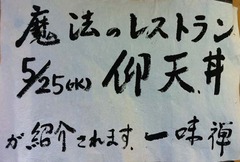 魔法のレストラン
5/25(水) 仰天丼
が、紹介されます。一味禅